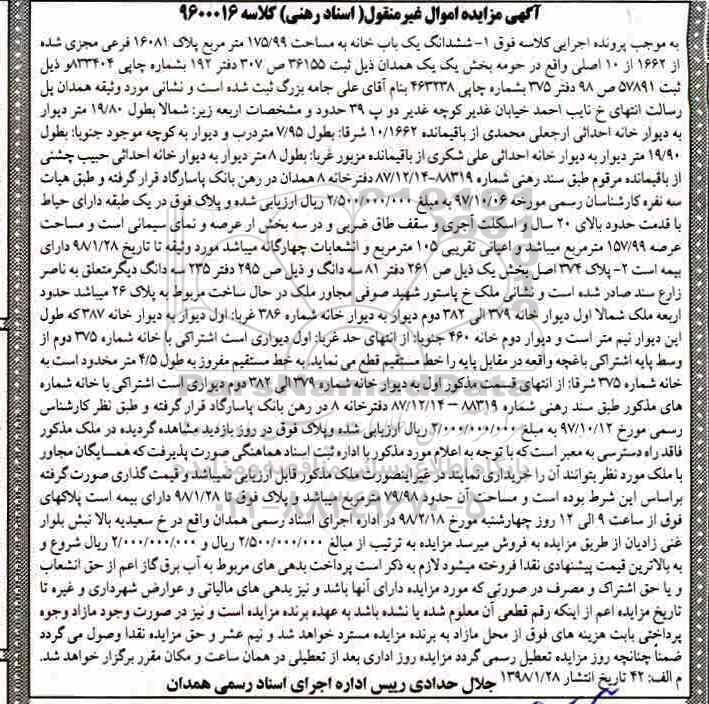 آگهی مزایده اموال غیرمنقول( اسناد رهنی) کلاسه ۹۶۰۰۰۱۶
به موجب پرونده اجرایی کلاسه فوق ۱- ششدانگ یک باب خانه به مساحت ۱۷۵/۹۹ متر مربع پلاک ۱۶۰۸۱ فرعی مجزی شده
از ۱۶۶۲ از ۱۰ اصلی واقع در حومه بخش یک یک همدان ذیل ثبت ۳۶۱۵۵ ص ۳۰۷ دفتر ۱۹۲ بشماره چاپی ۸۳۳۴۰۴و ذیل
ثبت ۵۷۸۹۱ ص ۹۸ دفتر ۳۷۵ بشماره چاپی ۴۶۳۲۳۸ بنام آقای علی جامه بزرگ ثبت شده است و نشانی مورد وثیقه همدان پل
رسالت انتهای خ نایب احمد خیابان غدیر کوچه غدیر دو پ ۳۹ حدود و مشخصات اربعه زیر: شمالا بطول ۱۹/۸۰ متر دیوار
به دیوار خانه احداثی ارجعلی محمدی از باقیمانده ۱۰/۱۶۶۲ شرقا: بطول ۷/۹۵ متردرب و دیوار به کوچه موجود جنوبا: بطول
۱۹/۹۰ متر دیوار به دیوار خانه احداثی علی شکری از باقیمانده مزبور غربا: بطول ۸ متر دیوار به دیوار خانه احداثی حبیب چشنی
از باقیمانده مرقوم طبق سند رهنی شماره ۸۸۳۱۹-۸۷/۱۲/۱۴ دفترخانه ۸ همدان در رهن بانک پاسارگاد قرار گرفته و طبق هیات
سه نفره کارشناسان رسمی مورخه ۹۷/۱۰/۰۶ به مبلغ ۲/۵۰۰/۰۰۰/۰۰۰ ریال ارزیابی شده و پلاک فوق در یک طبقه دارای حیاط
با قدمت حدود بالای ۲۰ سال و اسکلت آجری و سقف طاق ضربی و در سه بخش ار عرصه و نمای سیمانی است و مساحت
عرصه ۱۵۷/۹۹ مترمربع میباشد و اعیانی تقریبی ۱۰۵ مترمربع و انشعابات چهارگانه میباشد مورد وثیقه تا تاریخ ۹۸/۱/۲۸ دارای
بیمه است ۲- پلاک ۳۷۴ اصل بخش یک ذیل ص ۲۶۱ دفتر ۸۱ سه دانگ و ذیل ص ۲۹۵ دفتر ۲۳۵ سه دانگ دیگرمتعلق به ناصر
زارع سند صادر شده است و نشانی ملک خ پاستور شهید صوفی مجاور ملک در حال ساخت مربوط به پلاک ۲۶ میباشد حدود
اربعه ملک شمالا اول دیوار خانه ۳۷۹ الی ۳۸۲ دوم دیوار به دیوار خانه شماره ۳۸۶ غربا: اول دیوار به دیوار خانه ۳۸۷ که طول
این دیوار نیم متر است و دیوار دوم خانه ۴۶۰ جنوبا: از انتهای حد غربا: اول دیواری است اشتراکی با خانه شماره ۳۷۵ دوم از
وسط پایه اشتراکی باغچه واقعه در مقابل پایه را خط مستقیم قطع می نماید. به خط مستقیم مفروز به طول ۴/۵ متر محدود است به
خانه شماره ۳۷۵ شرقا: از انتهای قسمت مذکور اول به دیوار خانه شماره ۳۷۹ الی ۳۸۲ دوم دیواری است اشتراکی با خانه شماره
های مذکور طبق سند رهنی شماره ۸۸۳۱۹ – ۸۷/۱۲/۱۴ دفترخانه ۸ در رهن بانک پاسارگاد قرار گرفته و طبق نظر کارشناس
رسمی مورخ ۹۷/۱۰/۱۲ به مبلغ ۲/۰۰۰/۰۰۰/۰۰۰ ریال ارزیابی شده وپلاک فوق در روز بازدید مشاهده گردیده در ملک مذکور
فاقد راه دسترسی به معبر است که با توجه به اعلام مورد مذکور با اداره ثبت اسناد هماهنگی صورت پذیرفت که همسایگان مجاور
با ملک مورد نظر بتوانند آن را خریداری نمایند در غیر اینصورت ملک مذکور قابل ارزیابی نمیباشد و قیمت گذاری صورت گرفته
براساس این شرط بوده است و مساحت آن حدود ۷۹/۹۸ مترمربع میباشد و پلاک فوق تا ۹۸/۱/۲۸ دارای بیمه است پلاکهای
فوق از ساعت ۹ الی ۱۲ روز چهارشنبه مورخ ۹۸/۲/۱۸ در اداره اجرای اسناد رسمی همدان واقع در خ سعیدیه بالا نبش بلوار
غنی زادیان از طریق مزایده به فروش میرسد مزایده به ترتیب از مبالغ ۲/۵۰۰/۰۰۰/۰۰۰ ریال و ۲/۰۰۰/۰۰۰/۰۰۰ ریال شروع و
به بالاترین قیمت پیشنهادی نقدا فروخته میشود لازم به ذکر است پرداخت بدهی های مربوط به آب برق گاز اعم از حق انشعاب
و یا حق اشتراک و مصرف در صورتی که مورد مزایده دارای آنها باشد و نیز بدهی های مالیاتی و عوارض شهرداری و غیره تا
تاریخ مزایده اعم از اینکه رقم قطعی آن معلوم شده یا نشده باشد به عهده برنده مزایده است و نیز در صورت وجود مازاد وجوه
پرداختی بابت هزینه های فوق از محل مازاد به برنده مزایده مسترد خواهد شد و نیم عشر و حق مزایده نقدا وصول می گردد
ضمناً چنانچه روز مزایده تعطیل رسمی گردد مزایده روز اداری بعد از تعطیلی در همان ساعت و مکان مقرر برگزار خواهد شد.
م الف: ۴۲ تاریخ انتشار ۱۳۹۸/۱/۲۸ جلال حدادی رییس اداره اجرای اسناد رسمی همدان